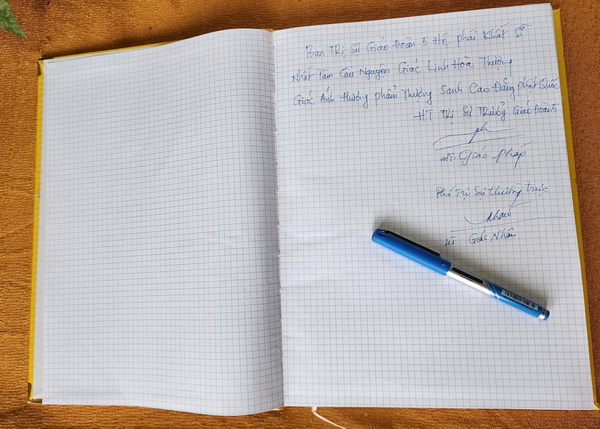 Ban Trị Sự Giáo Đoàn 5 Hệ phái Khất Sĩ
Nhất Tâm Cầu Nguyện Giác Linh Hòa Thượng
Giác Ánh thượng phẩm Thượng Sanh Cao Đẳng phật Quốc
HT Tri Sự Trưởng Giáo Đoàn 5
HT. Giác Pháp
Phó Trị Sự thường trực
Nhân
Giác Nhân